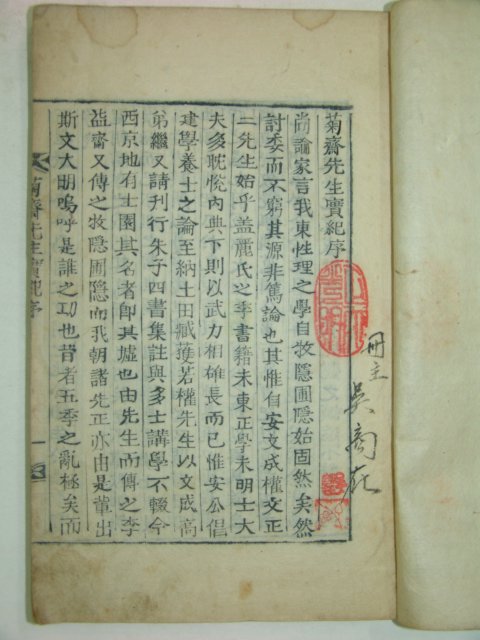 冊主 吳
菊齋先生實紀序
尙論家言我東性理之學自牧隱圃隱始固然矣然
討委而不窮其源非篤論也其惟自安文成權文正
二先生始乎盖麗氏之季書籍未東正學未明士大
夫多耽悅內典下則以武力相雄長而已惟安公倡
建學養士之論至納土田臧獲若權先生以文成高
弟繼又請刊行朱子四書集註與多士講學不輟今
西京地有士園其名者卽其墟也由先生而傳之李
益齋又傳之牧隱圃隱而我朝諸先正亦由是輩出
斯文大明嗚呼是誰之功也昔者五季之亂極矣而
菊齋先生實紀序 一